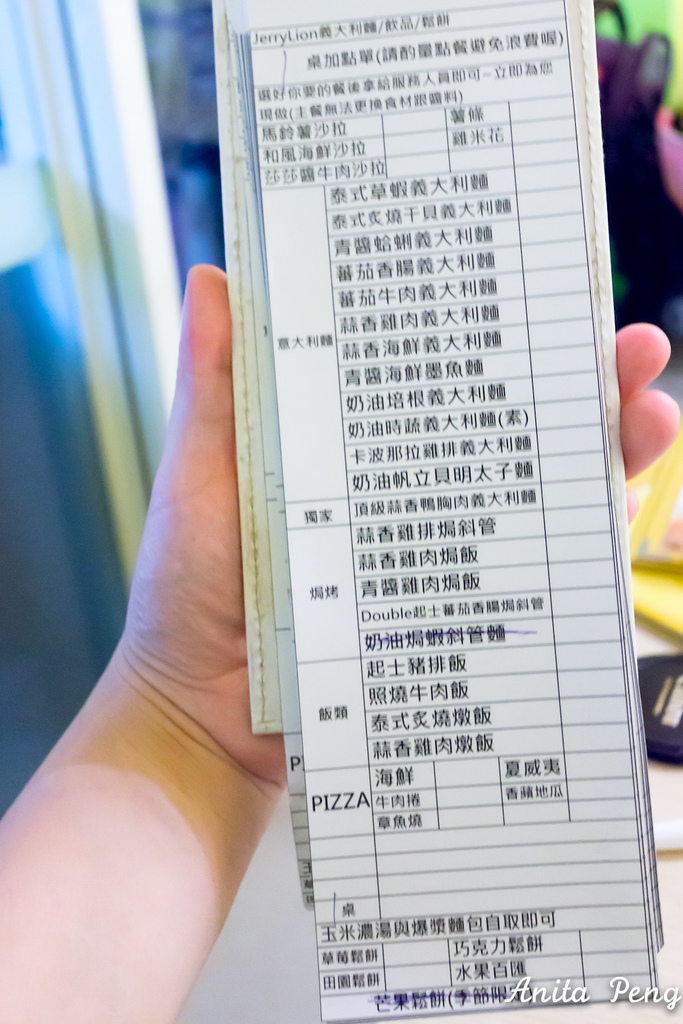 JerryLion義大利麵/飲品/鬆餅
桌加點單(請酌量點餐避免浪費喔)
選好你要的餐後拿給服務人員即可~立即為您
現做(主餐無法更換食材跟醬料)
馬鈴薯沙拉 薯條
和風海鮮沙拉 雞米花
莎莎醬牛肉沙拉
意大利麵
泰式草蝦義大利麵
泰式炙燒干貝義大利麵
青醬蛤蜊義大利麵
蕃茄香腸義大利麵
蕃茄牛肉義大利麵
蒜香雞肉義大利麵
蒜香海鮮義大利麵
青醬海鮮墨魚麵
奶油培根義大利麵
奶油時蔬義大利麵(素)
卡波那拉雞排義大利麵
奶油帆立貝明太子麵
獨家 頂級蒜香鴨胸肉義大利麵
焗烤
蒜香雞排焗斜管
蒜香雞肉焗飯
青醬雞肉焗飯
Double起士蕃茄香腸焗斜管
奶油焗蝦斜管麵
飯類
起士豬排飯
照燒牛肉飯
泰式炙燒燉飯
蒜香雞肉燉飯
PIZZA
海鮮 夏威夷
牛肉捲 香蘋地瓜
章魚燒
桌
玉米濃湯與爆漿麵包自取即可
草莓鬆餅 巧克力鬆餅
田園鬆餅 水果百匯
芒果鬆餅(季節限
Anita Peng